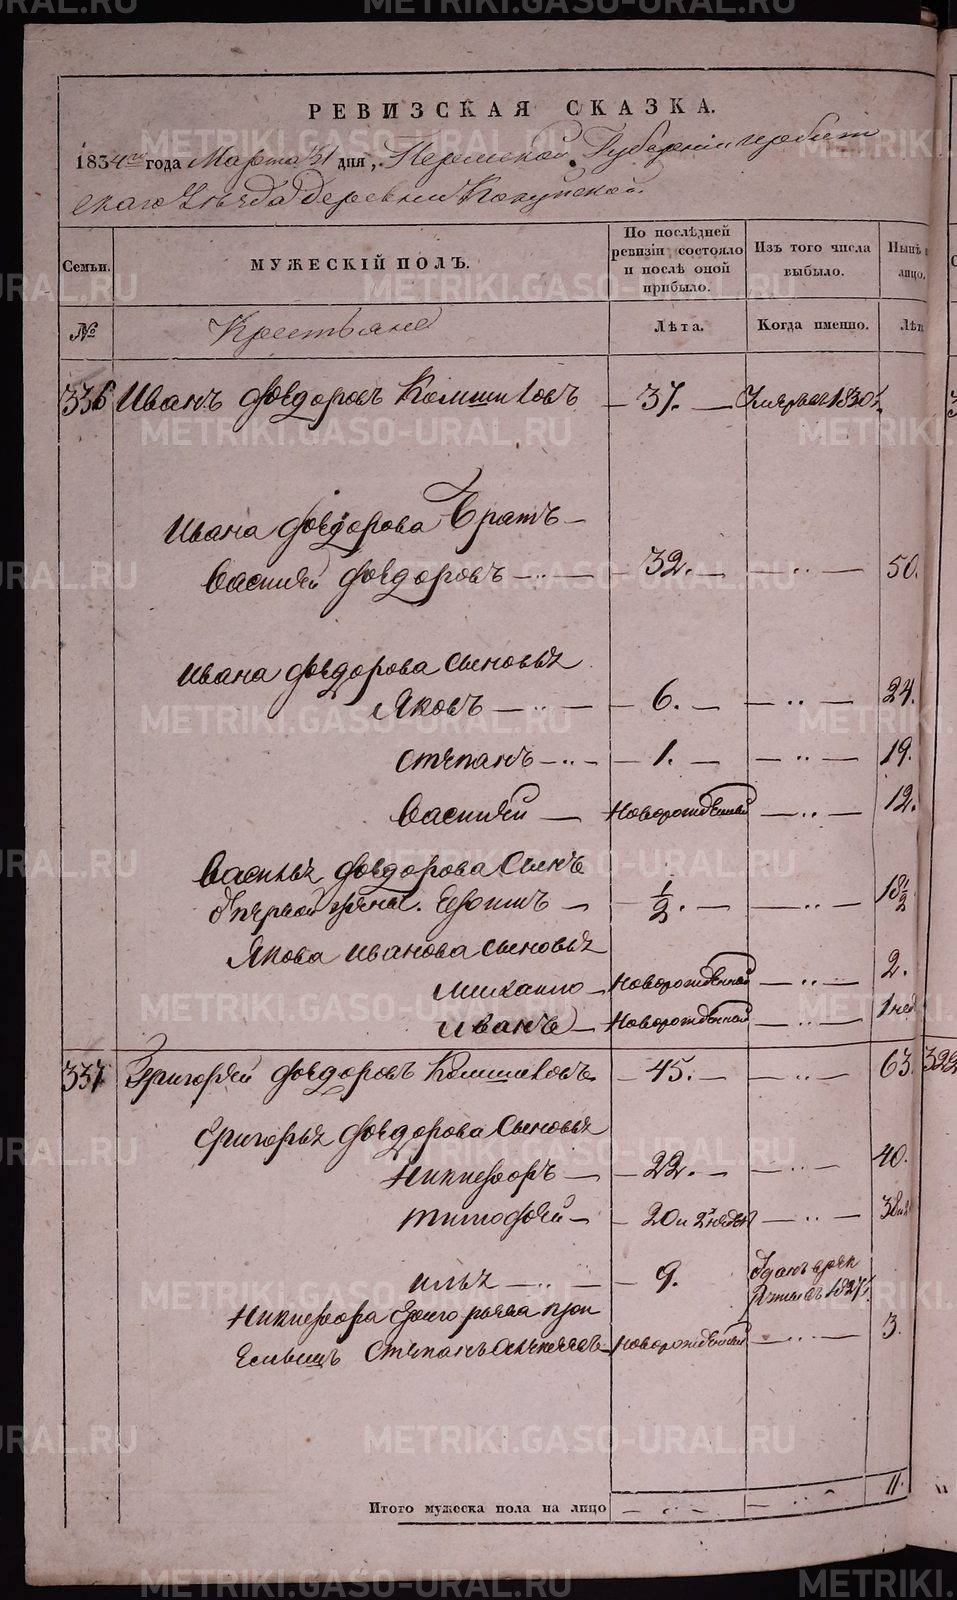 РЕВИЗСКАЯ СКАЗКА.
1834 го года Марта 31 дня, Пермской Губернии Ирбит
скаго Уѣзда деревни
Семьи. МУЖЕСКІЙ ПОЛЪ. По послѣдней ревизіи состояло и послѣ оной прибыло. Изъ того числа выбыло. Нынѣ лицо.
№ Крестьяне Лѣта. Когда именно. Лѣт
336 Иванъ Фёдоровъ Комшиловъ 37. 1830
Ивана Фёдорова Братъ
Василей Фёдоровъ 32. 50.
Ивана Фёдорова сыновья
Яковъ 6. 24.
Степанъ 1. 19.
Василей Новорожденный 12.
Василья Фёдорова Сынъ
От первой жены. 1/2. 18 1/2
Якова Иванова сыновья
Михаило Новорожденной 2.
Иванъ Новорожденной 1 нед
337 Григорей Фёдоровъ 45. 63. 322
Григорья Фёдорова Сыновья
Никифоръ 22. 40.
Тимофей 20 и 2 недел 38 и 2
Илья 9. Отданъ в рек
руты въ 1827
Никифора
Степанъ Новорожденный 3.
Итого мужеска пола на лицо 11.
METRIKI.GASO-URAL.RU